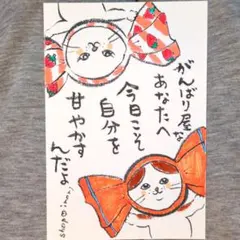 がんばり屋な
あなたへ
今日こそ
自分を
甘やかす
んだよ